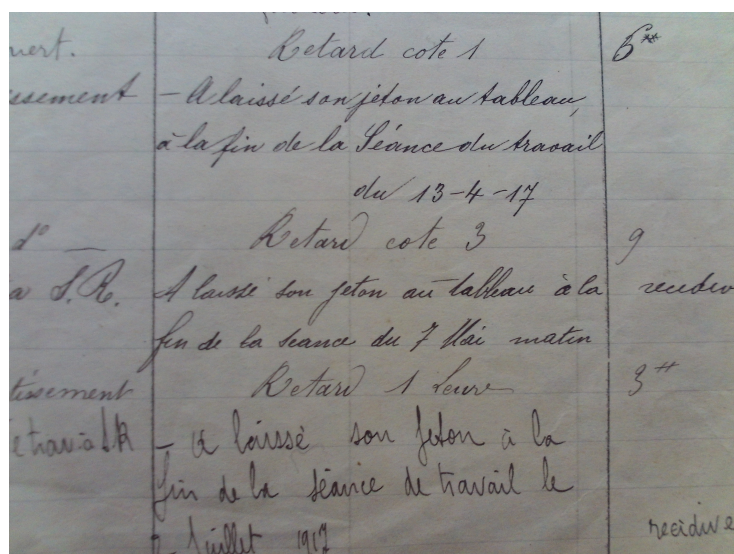 Retard cote 1 6
- A laissé son jeton au tableau,
à la fin de la Séance du travail
du 13-4-17
d° — Retard cote 3 9
S.R. A laissé son jeton au tableau à la
fin de la seance du 7 Mai matin
Retard 1 heure 3
- a laissé son jeton à la
fin de la séance de travail le
Juillet 1917 recidive